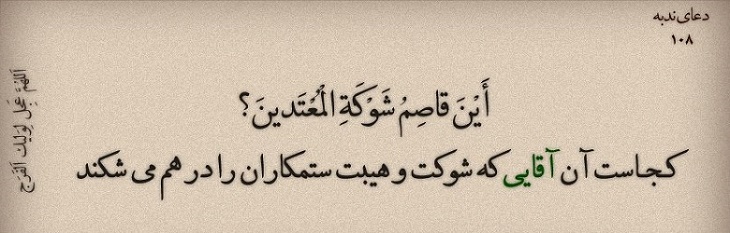 دعای ندبه
۱۰۸
أَيْنَ قاصِمُ شَوْكَةِ الْمُعْتَدينَ؟
کجاست آن آقایی که شوکت و هیبت ستمکاران را در هم می شکند
اللهم عجل لولیک الفرج